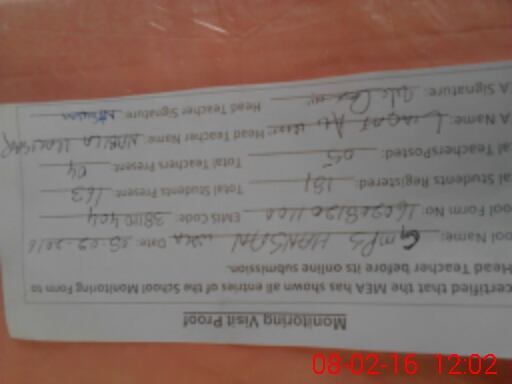 Monitoring Visit Proof
certified that the MEA has shown all entries of the School Monitoring Form to
Head Teacher before its online submission.
ool Name: GMPS HANSPAL WALA Date: 08-02-2016
ool Form No: EMIS Code: 38110404
al Students Registered: 181 Total Students Present: 163
al TeachersPosted: 05 Total Teachers Present: 04
A Name: Liaqat Ali Head Teacher Name: NABILA KOUSAR
A Signature: Head Teacher Signature:
08-02-16 12:02